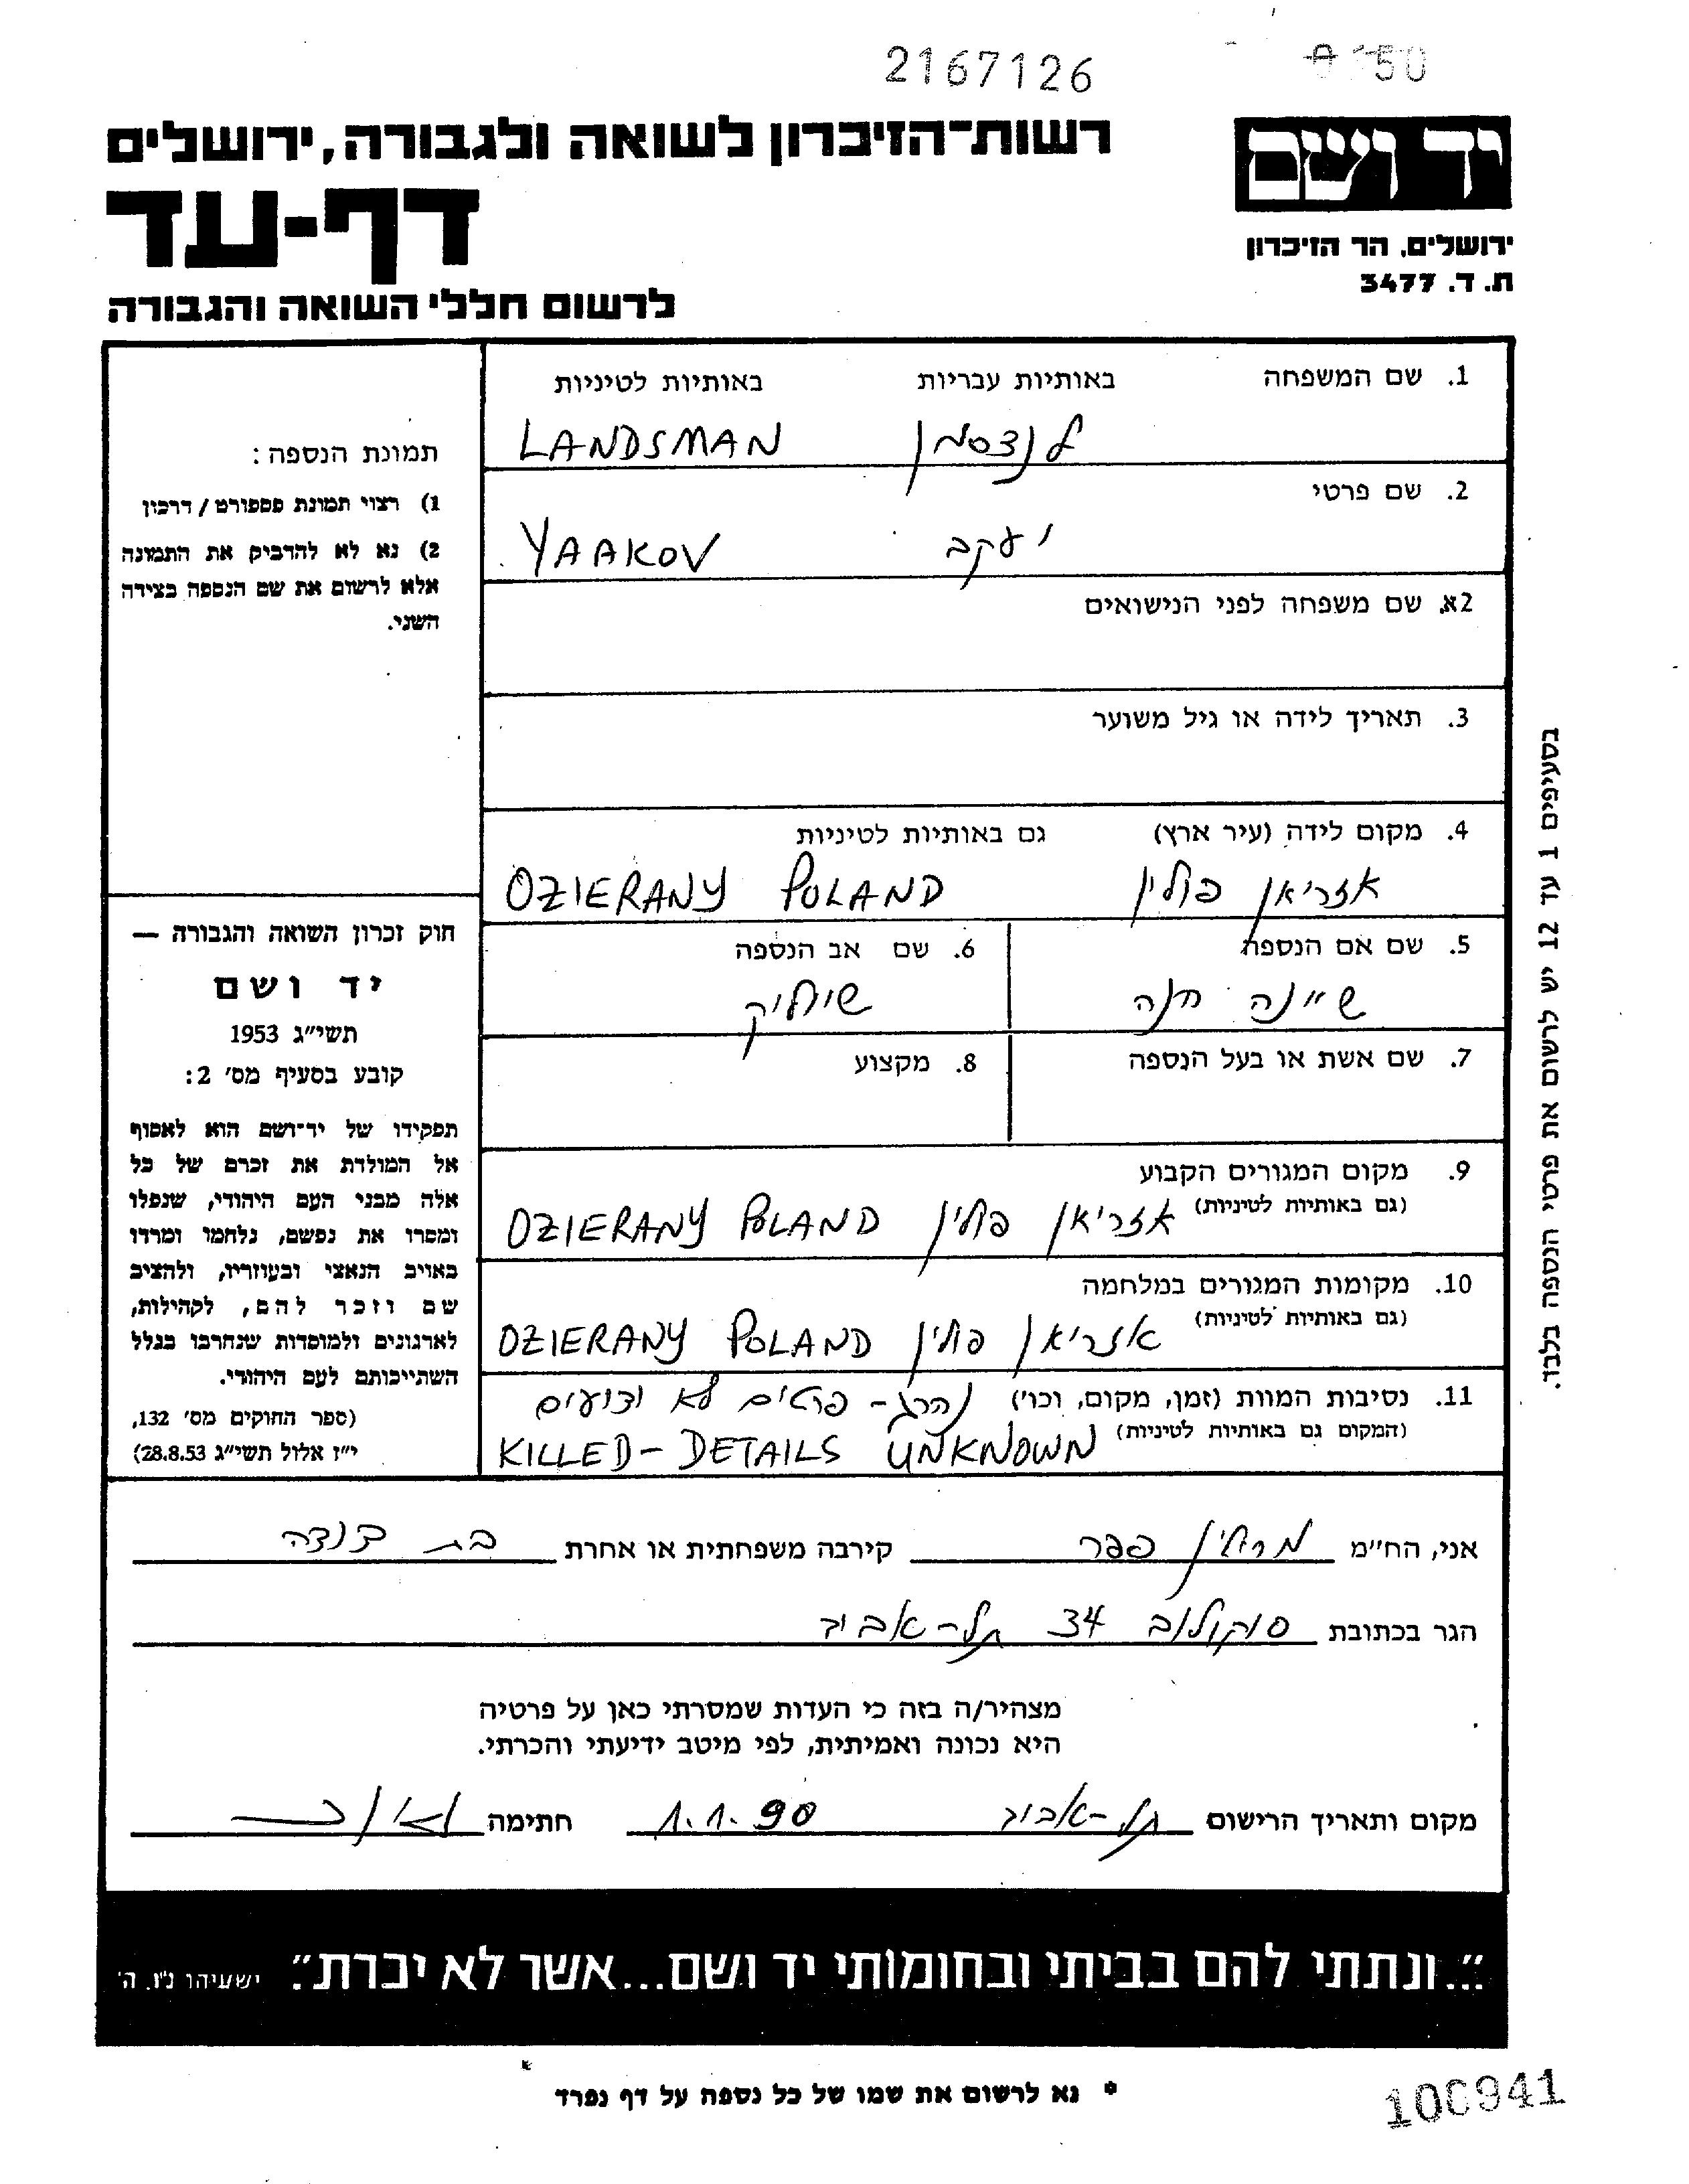 2167126
50
רשות־הזיכרון לשואה ולגבורה, ירושלים
יד ושם
דף-עד
ירושלים, הר הזיכרון
ת. ד. 3477
לרשום חללי השואה והגבורה
1. שם המשפחה באותיות עבריות באותיות לטיניות
לנצסמן LANDSMAN
2. שם פרטי
יעקב YAAKOV
2א. שם משפחה לפני הנישואים
3. תאריך לידה או גיל משוער
4. מקום לידה (עיר ארץ) גם באותיות לטיניות
אזריאן פולין OZIERANY POLAND
5. שם אם הנספה 6. שם אב הנספה
שיינה חנה שיוליק
7. שם אשת או בעל הנספה 8. מקצוע
9. מקום המגורים הקבוע
(גם באותיות לטיניות) אזריאן פולין OZIERANY POLAND
10. מקומות המגורים במלחמה
(גם באותיות לטיניות) אזריאן פולין OZIERANY POLAND
11. נסיבות המוות (זמן, מקום, וכו׳) נהרג - פרטים לא ידועים
(המקום גם באותיות לטיניות) KILLED - DETAILS UNKNOWN
תמונת הנספה:
1) רצוי תמונת פספורט / דרכון
2) נא לא להדביק את התמונה
אלא לרשום את שם הנספה בצידה
השני.
חוק זכרון השואה והגבורה —
יד ושם
תשי״ג 1953
קובע בסעיף מס׳ 2:
תפקידו של יד־ושם הוא לאסוף
אל המולדת את זכרם של כל
אלה מבני העם היהודי, שנפלו
ומסרו את נפשם, נלחמו ומרדו
באויב הנאצי ובעוזריו, ולהציב
שם וזכר להם, לקהילות,
לארגונים ולמוסדות שנחרבו בגלל
השתייכותם לעם היהודי.
(ספר החוקים מס׳ 132,
י״ז אלול תשי״ג 28.8.53)
בסעיפים 1 עד 12 יש לרשום את פרטי הנספה בלבד.
אני, הח״מ מרלין פפר קירבה משפחתית או אחרת בת דודה
הגר בכתובת סוקולוב 34 תל-אביב
מצהיר/ה בזה כי העדות שמסרתי כאן על פרטיה
היא נכונה ואמיתית, לפי מיטב ידיעתי והכרתי.
מקום ותאריך הרישום תל-אביב 1.1.90 חתימה
״...ונתתי להם בביתי ובחומותי יד ושם...אשר לא יכרת״. ישעיהו נ״ו, ה׳
* נא לרשום את שמו של כל נספה על דף נפרד
100941